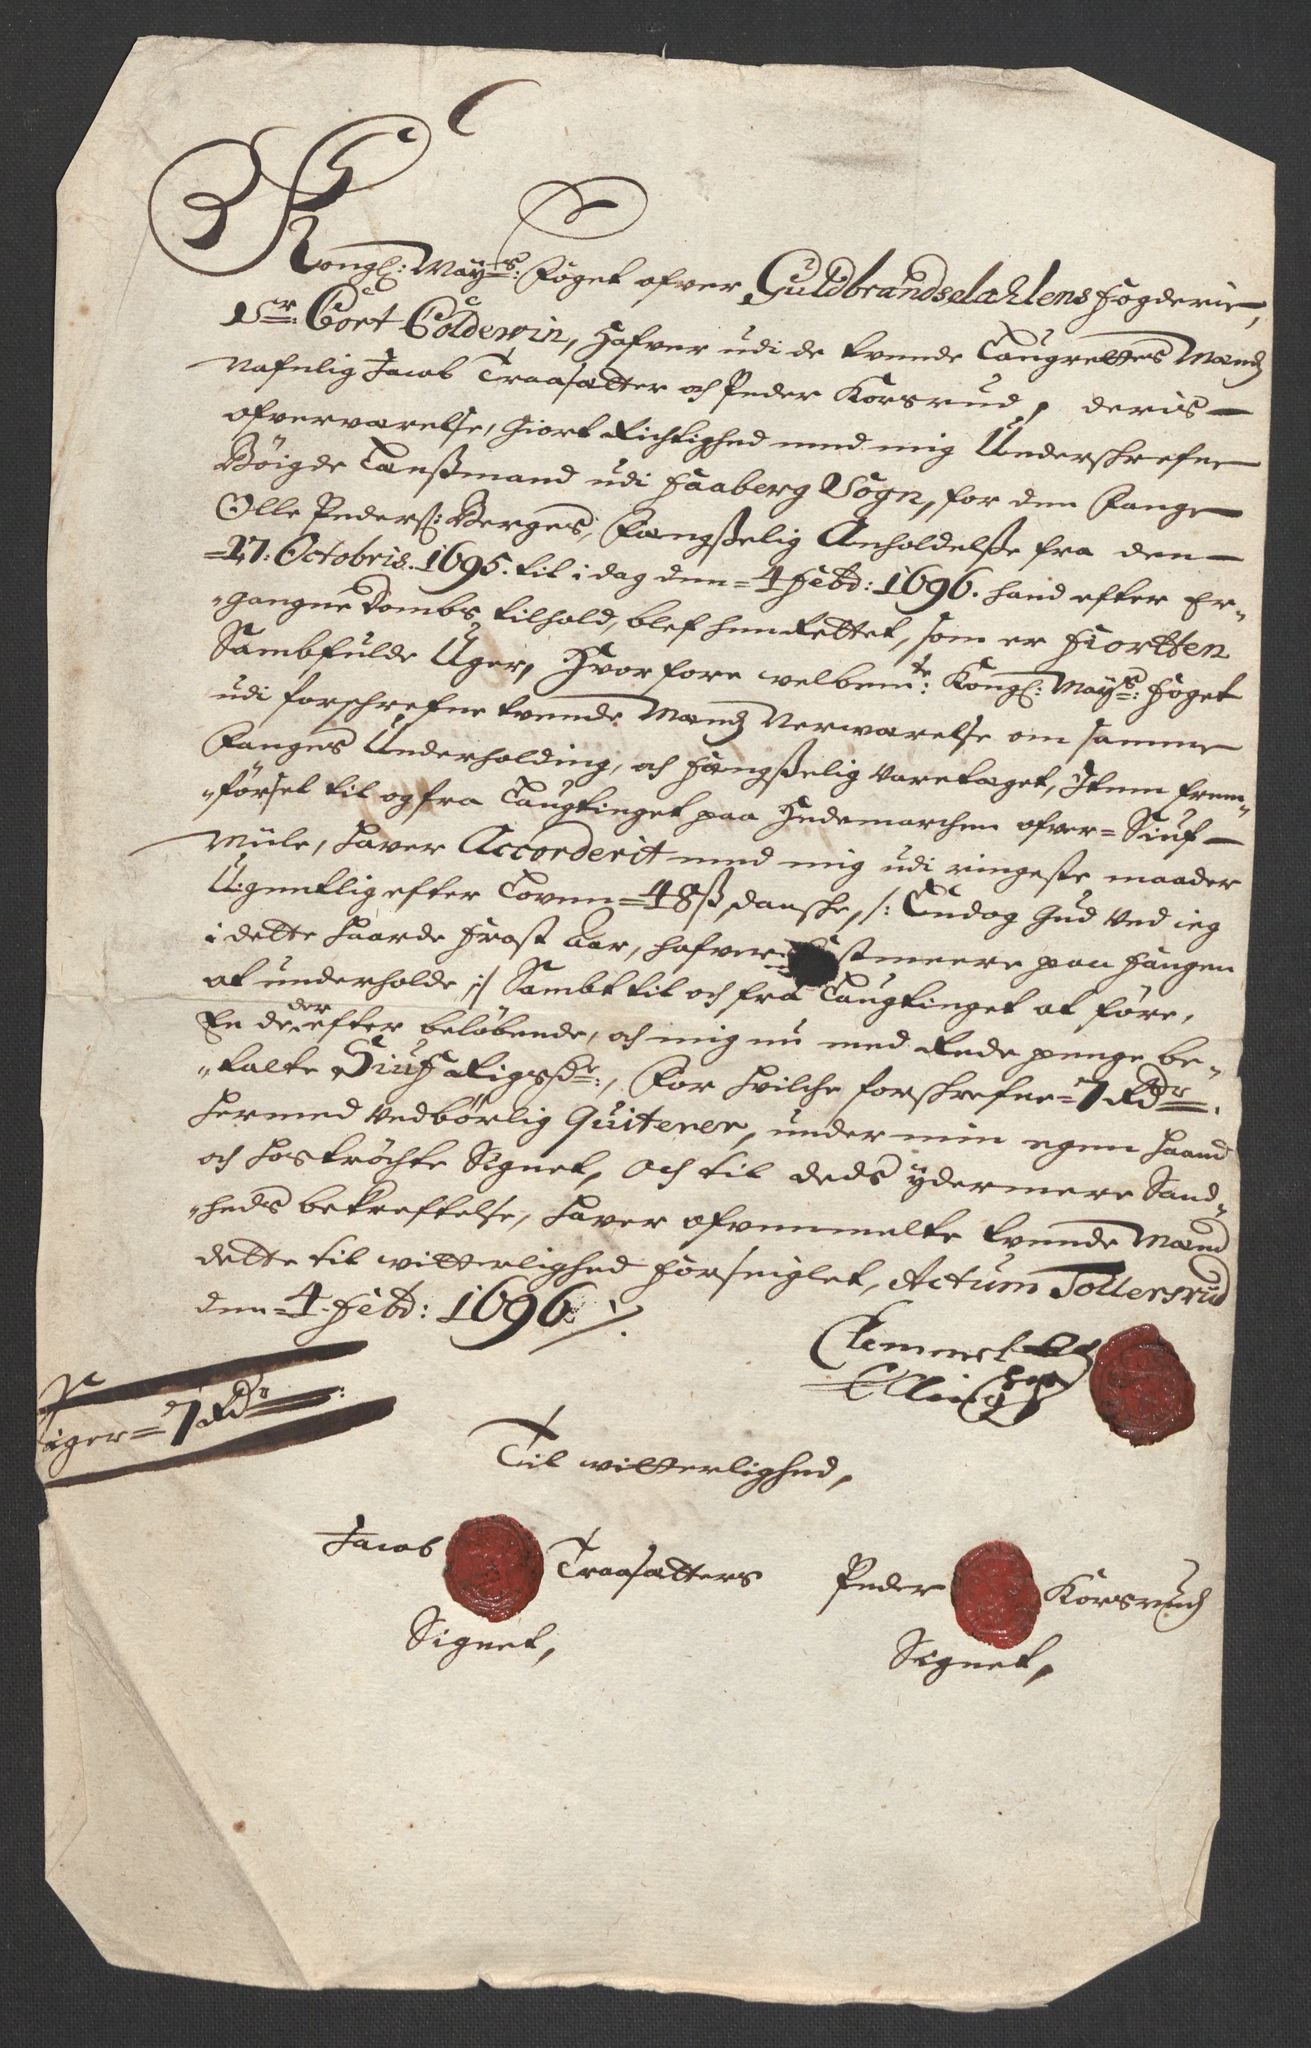 Kongl: Mayts: Foget ofver Guldbrandsdahlens Fogderie,
Sr: Cort Coldewin, Hafver udi de tvende Laugrettes Mænd
Nafnlig Jacob Traasætter och Peder Korsrud, deris
ofverværelse, giort Richtighed med mig Underschrefne
Böigde Lensmand udi Faaberg Sogn, for den Fange
Olle Peders: Berges, Fængselig Anholdelse fra den
=27. Octobris. 1695. til i dag den =4 Febr: 1696. hand efter Er-
gangne Dombs tilhold, blef henrettet, som er Fiortten
Sambfulde Uger, Hvorfore velbemte: Kongl: Mayts: Foget
udi forschrefne tvende Mænds Nerwærelse om samme
Fanges Underholding, och Fængselig Varetaget, Item frem-
försel til og fra Laugtinget paa Hedemarchen ofver = Siuf
Miile, haver Accorderit med mig udi ringeste maader
Ugentlig efter Loven = 48 s danske, /: Endog Gud Ved ieg
i dette haarde Frost Aar, hafver meere paa Fangen
at underholde :/ Sambt til och fra Laugtinget at före,
En der efter belöbende, och mig nu med Rede penge be-
talte Siuf Rigsdr:, For hvilche forschrefne = 7 Rdr.
hermed Vedbörlig Quiterer, under min egen haand
och hoströchte Signet, och til deds ydermere Sand-
heds bekreftelse, haver ofvenmelte tvende Mænd
dette til witterlighed forseiglet, Actum Tollersrud
den = 4. Febr: 1696 /.
Clemmet
Elling
Siger = 7 Rdr:
Til witterlighed,
Jacob Traasætters
Signet,
Peder Korsruds
Signet,